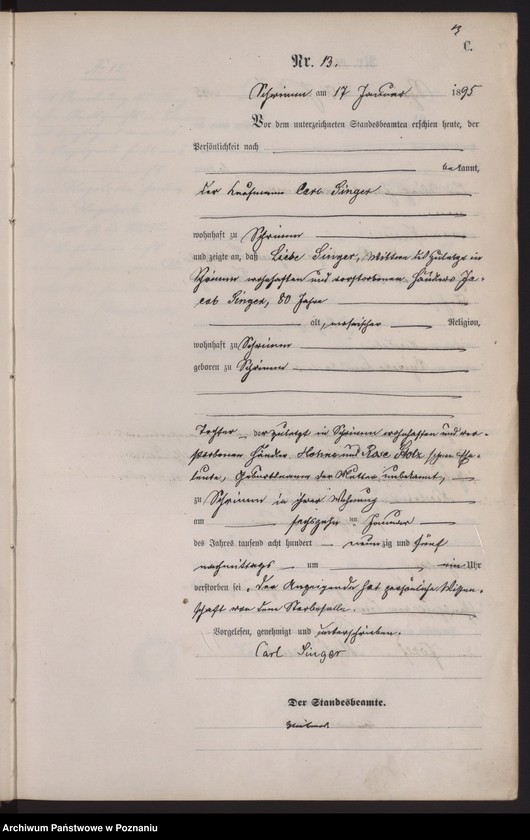 13
C.
Nr. 13.
Schrimm am 17 Januar 1895
Vor dem unterzeichneten Standesbeamten erschien heute, der
Persönlichkeit nach
bekannt,
der Kaufmann Carl Singer
wohnhaft zu Schrimm
und zeigte an, daß Liebe Singer, Wittwe des zuletzt in
Schrimm wohnhaften und verstorbenen Händlers Ja-
cob Singer, 80 Jahre
alt, mosaischer Religion,
wohnhaft zu Schrimm
geboren zu Schrimm
Tochter der zuletzt in Schrimm wohnhaften und ver-
storbenen Händler und Rose schen Ehe-
leute, Geburtsname der Mutter unbekannt,
zu Schrimm in ihrer Wohnung
am sechszehn ten Januar
des Jahres tausend acht hundert neunzig und fünf
nachmittags um ein Uhr
verstorben sei. Der Anzeigende hat persönliche Wissen-
schaft von dem Sterbefalle.
Vorgelesen, genehmigt und unterschrieben.
Carl Singer
Der Standesbeamte.
Archiwum Państwowe w Poznaniu